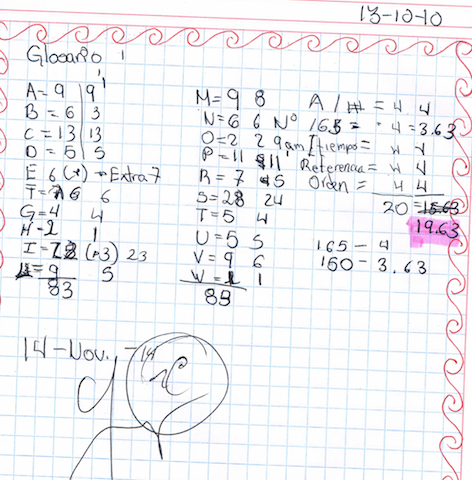 13-10-10
Glosario 1
A = 9 | 9
B = 6 | 3
C = 13 | 13
D = 5 | 5
E 6 (x) → Extra 7
6 6
G = 4 4
H = 2 1
I = (+3) 23
= 9 5
83
M = 9 8
N = 6 6 Nº
O = 2 2 9am
P = 11 11
R = 7 5
S = 28 24
T = 5 4
U = 5 5
V = 9 6
W = 1 1
83
A / # = 4 4
165 = 4 = 3.63
Itiempo = 4 4
Referencia = 4 4
Orden = 4 4
20 = 15.63
19.63
165 - 4
150 - 3.63
14-Nov.-14